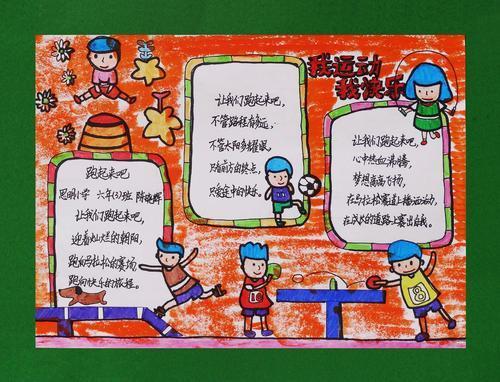 我运动
我快乐
跑起来吧
思明小学 六年(3)班 陈晓辉
让我们跑起来吧,
迎着灿烂的朝阳,
跑向马拉松的赛场,
跑向快乐的旅程。
让我们跑起来吧,
不管路程有多远,
不管太阳多耀眼,
只有前方的终点,
只爱途中的快乐。
让我们跑起来吧,
心中热血沸腾,
梦想高高飞扬,
在马拉松赛道上挥洒运动,
在汶水的道路上赛出自我。
10
8